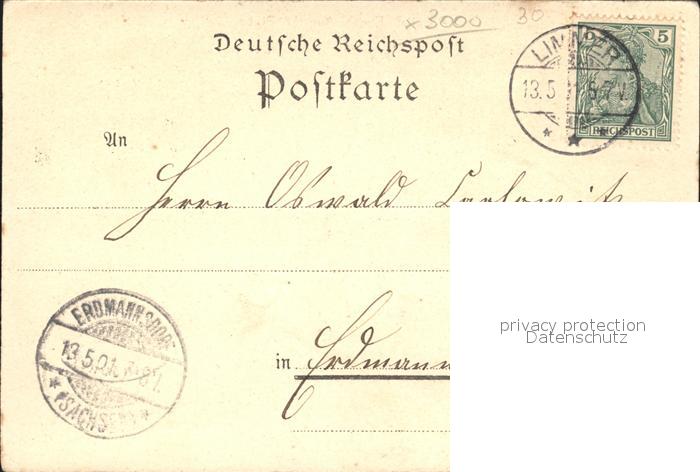 × 3000 30
Deutsche Reichspost
Postkarte
5
REICHSPOST
13.5
An
Herrn Oswald
ERDMANNSDORF
13.5.01.
* (SACHSEN) *
in Erdmann
privacy protection
Datenschutz